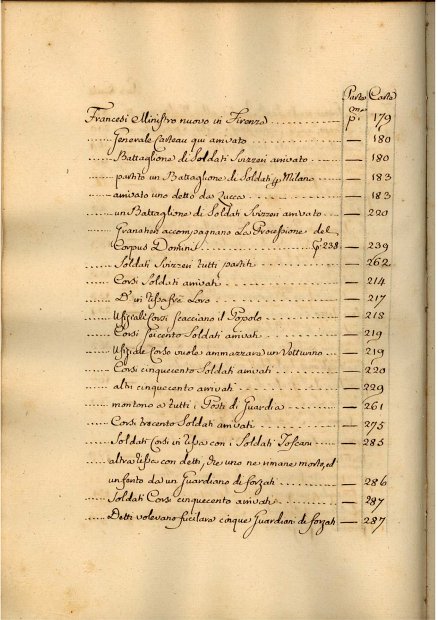 Parte Carte
Francesi Ministro nuovo in Firenze .......... p.ma 179
...... Generale Carteau qui arrivato .......... — 180
...... Battaglione di Soldati Svizzeri arrivato .......... — 180
...... partito un Battaglione di Soldati p Milano — 183
...... arrivato uno detto da Lucca .......... — 183
...... un Battaglione di Soldati Svizzeri arrivato .... — 220
...... Granatieri accompagnano La Processione del
Corpus Domini .......... p 238 — 239
...... Soldati Svizzeri tutti partiti .......... — 262
...... Corsi Soldati arrivati .......... — 214
...... D.i in rissa fra Loro .......... — 217
...... Ufiziali Corsi scacciano il Popolo .......... — 218
...... Corsi seicento Soldati arrivati .......... — 219
...... Ufiziale Corso vuole ammazzare un Vetturino .. — 219
...... Corsi cinquecento Soldati arivati .......... — 220
...... altri cinquecento arrivati .......... — 229
...... montono a tutti i Posti di Guardia .......... — 261
...... Corsi trecento Soldati arivati .......... — 275
...... Soldati Corsi in rissa con i Soldati Toscani .... — 285
...... altra rissa con detti, che uno ne rimane morto, ed
un ferito da un Guardiano di forzati .......... — 286
...... Soldati Corsi cinquecento arrivati .......... — 287
...... Detti volevano fucilare cinque Guardiani di forzati — 287